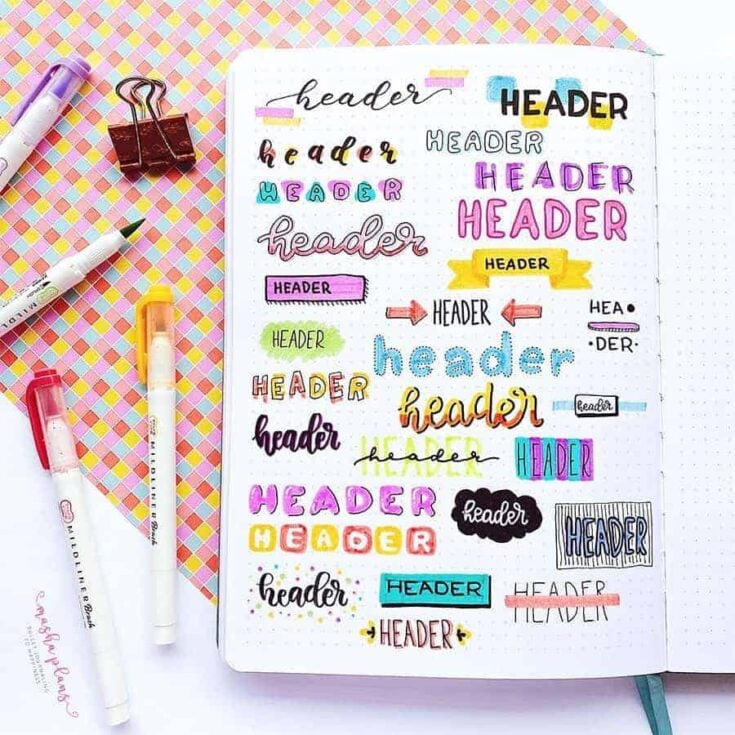 header
HEADER
HEADER
header
HEADER
HEADER
HEADER
header
HEADER
HEADER
HEADER
HEA•
•DER•
HEADER
header
HEADER
header
header
header
HEADER
header
HEADER
HEADER
header
HEADER
HEADER
header
HEADER
HEADER
HEADER
MILDLINER
MILDLINER Brush
MILDLINER Brush
masha plans
BULLET JOURNALING
TO HAPPINESS